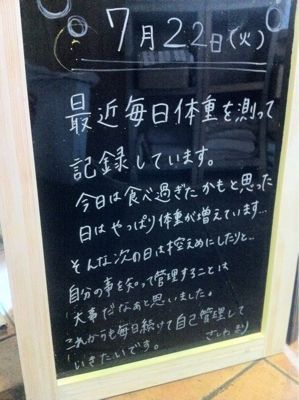 7月22日(火)
最近毎日体重を測って
記録しています。
今日は食べ過ぎたかもと思った
日はやっぱり体重が増えています…
そんな次の日は控えめにしたりと…
自分の事を知って管理することは
大事だなあと思いました。
これからも毎日続けて自己管理して
いきたいです。